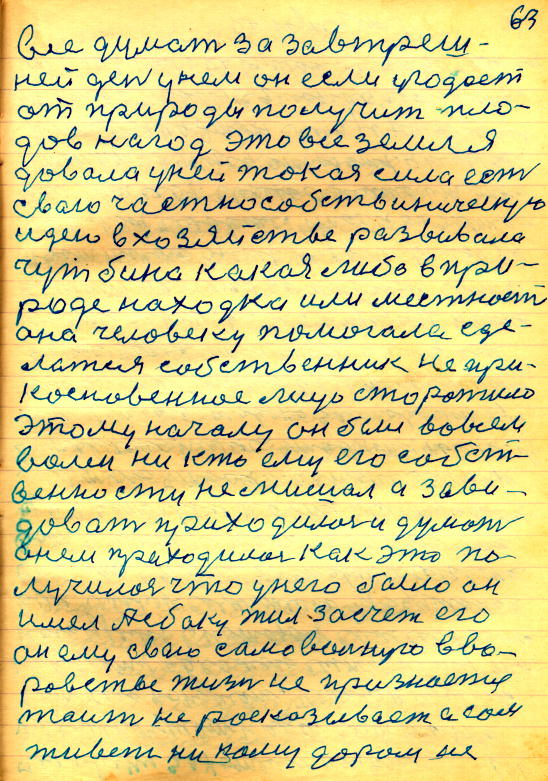 63
вле думат за завтреш-
ней ден унем он если угодает
от природы получит пло-
дов нагод это все земля
довала уней токая сила ест
сваю частнособствиническую
идею в хозяйстве развивала
чут бина какая либо в при-
роде находка или местност
она человеку помогала сде-
латся собственник не при-
косновенное лицо сторожило
этому началу он был вовсем
волен ни кто ему его собст-
венности не мишал а зави-
доват приходилоя и думат
онем приходилоя как это по
лучилоя что унего было он
имел Я сбоку жил засчет его
он ему сваю самоволную вво-
ровстве жизн не признается
таит не росказывает а сам
живет ни кому даром не